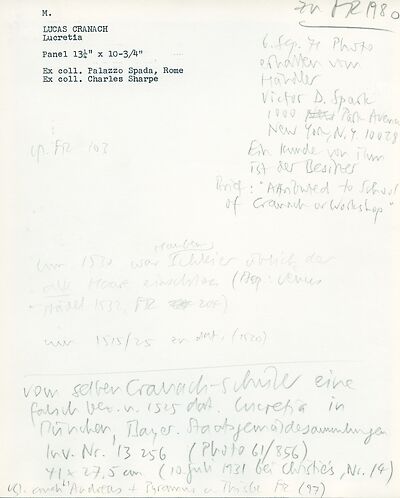 M.
zu FR 1980
LUCAS CRANACH
Lucretia
Panel 13¼" x 10-3/4"
Ex coll. Palazzo Spada, Rome
Ex coll. Charles Sharpe
6. Sep. 71 Photo
erhalten vom
Händler
Victor D. Spark
1000 Park Avenue
New York, N.Y. 10028
Ein Kunde von ihm
ist der Besitzer
Brief: "Attributed to School
of Cranach or Workshop"
cf. FR 103
um 1530 war Schleier üblich der
alle Haare (Bsp.: Venus
Städel 1532, FR 204)
um 1515/25 zu dat. (1520)
vom selben Cranach-Schüler eine
falsch bez. u. 1525 dat. Lucretia in
München, Bayer. Staatsgemäldesammlungen
Inv. Nr. 13 256 (Photo 61/856)
41 x 27,5 cm (10 Juli 1931 bei Christie's, Nr. 14)
vgl. auch Andreas + Pyramus u. Thisbe FR (97)